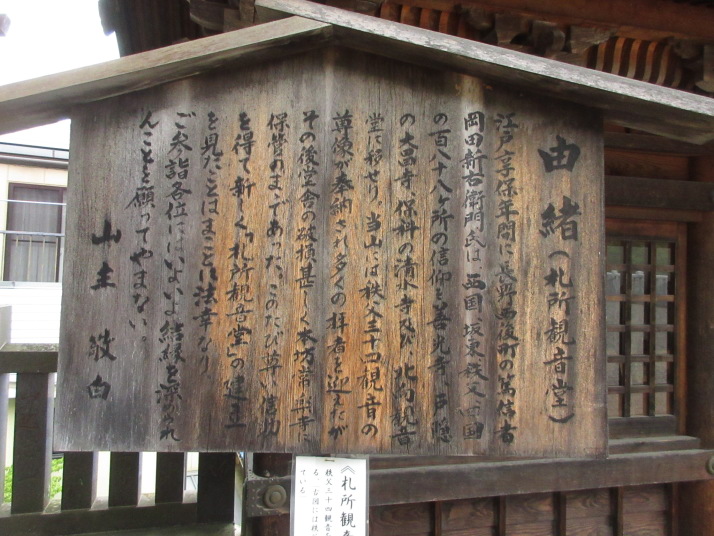 由緒(札所観音堂)
江戸享保年間に長野西後町の篤信者
岡田新右衛門氏は、西国、坂東、秩父、四国
の百八十八ヶ所の信仰を善光寺、戸隠
の大昌寺、保科の清水寺及び、北向観音
堂に移せり、当山には秩父三十四観音の
尊像が奉納され多くの拝者を迎えたが
その後堂舎の破損甚しく本坊常楽寺に
保管のまゝであった。このたび尊い浩助
を得て新しく「札所観音堂」の建立
を見たことはまことに法幸なり
ご参詣各位にはいよいよ結縁を深められ
んことを願ってやまない。
山主敬白
《札所観音
秩父三十四観音
る。右側には
ている。